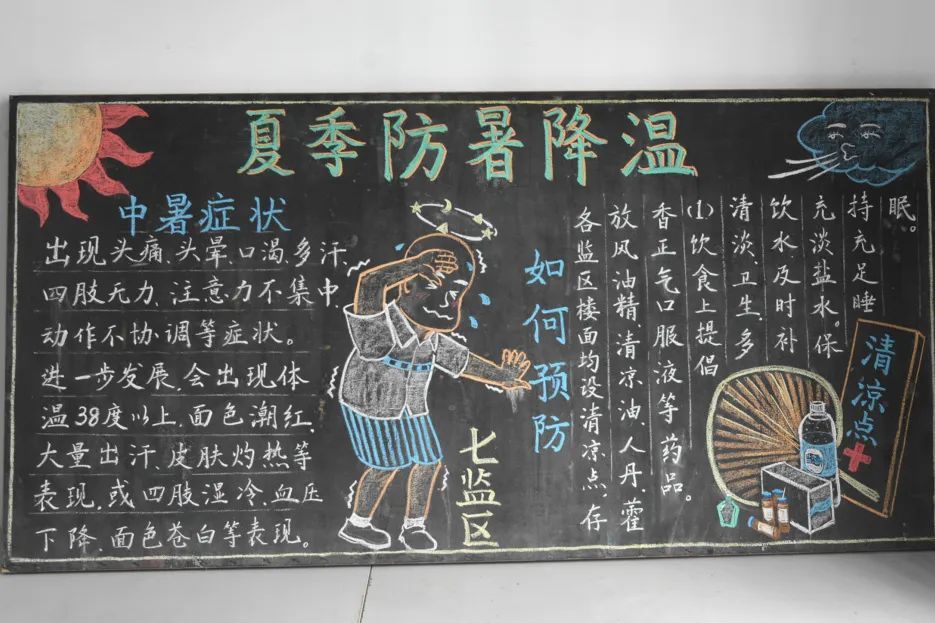 夏季防暑降温
中暑症状
出现头痛、头晕、口渴、多汗、
四肢无力、注意力不集中、
动作不协调等症状。
进一步发展,会出现体
温38度以上,面色潮红、
大量出汗、皮肤灼热等
表现,或四肢湿冷、血压
下降、面色苍白等表现。
七监区
如何预防
各监区楼面均设清凉点,存
放风油精、清凉油、人丹、藿
香正气口服液等药品。
(1)饮食上提倡
清淡卫生,多
饮水及时补
充淡盐水。保
持充足睡
眠。
清凉点